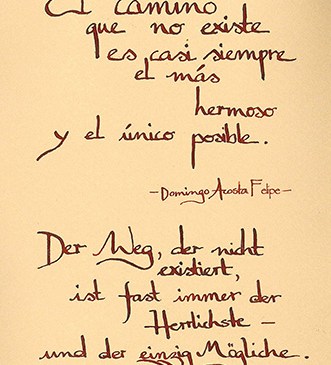 El camino
que no existe
es casi siempre
el más
hermoso
y el único posible.
— Domingo Acosta Felipe —
Der Weg, der nicht
existiert,
ist fast immer der
Herrlichste –
und der einzig Mögliche.